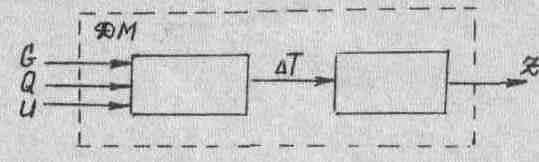 ФМ
G
Q
U
ΔT
Z